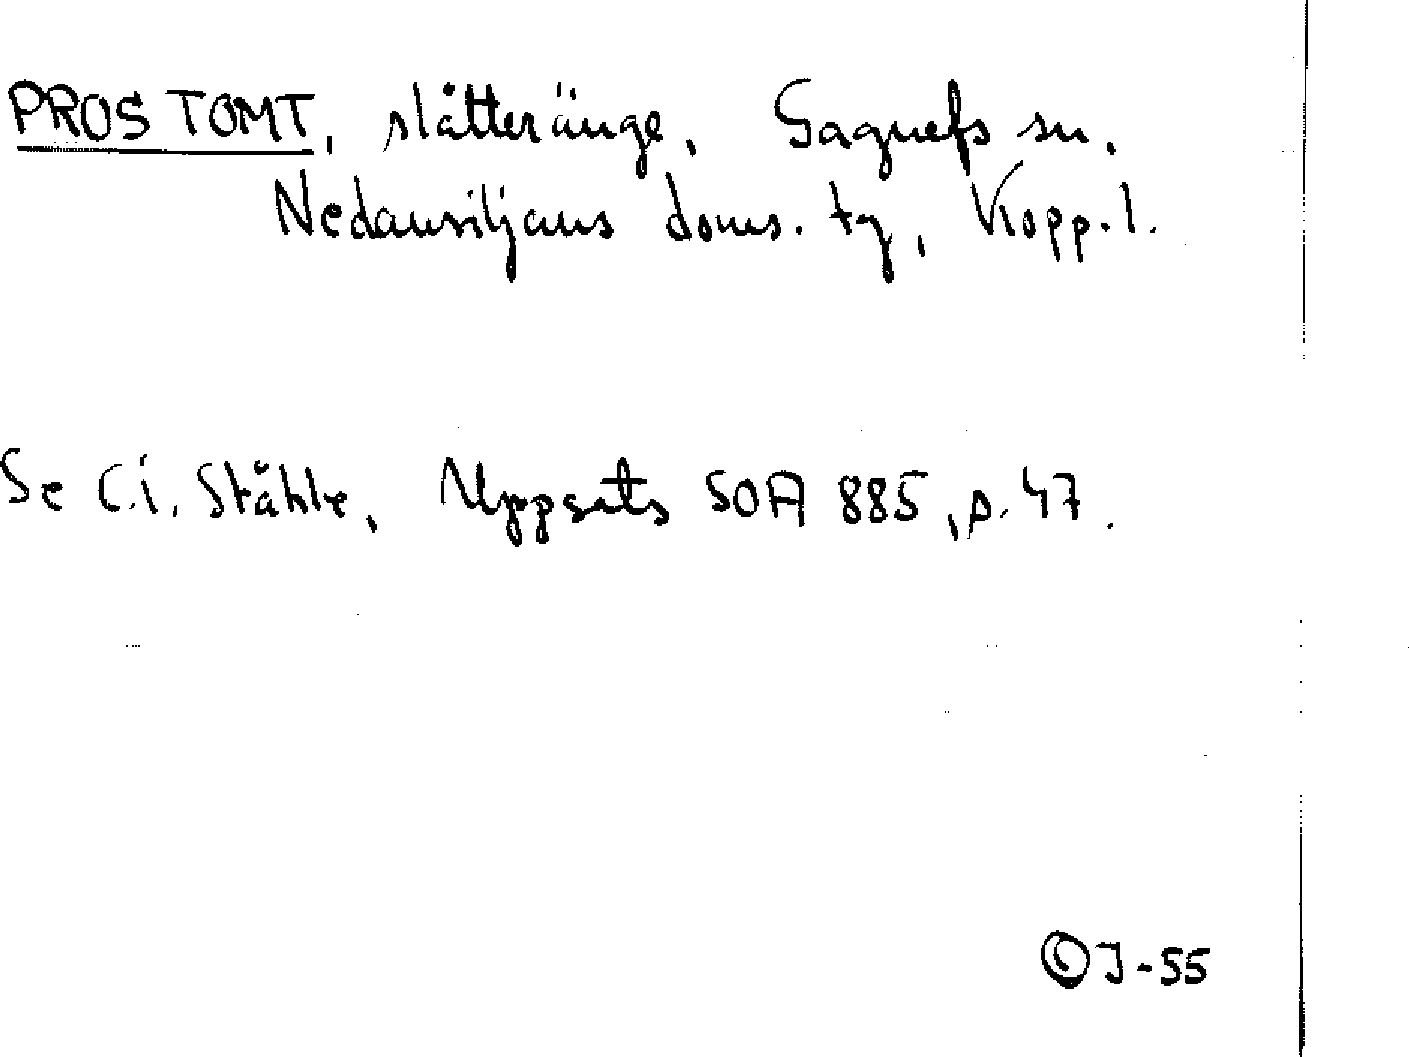 PROS TOMT, slåtteränge, Gagnefs sn.
Nedansiljans doms. tg, Kopp. l.
Se C.I. Ståhle, Uppsats SOA 885, s. 47.
J-55